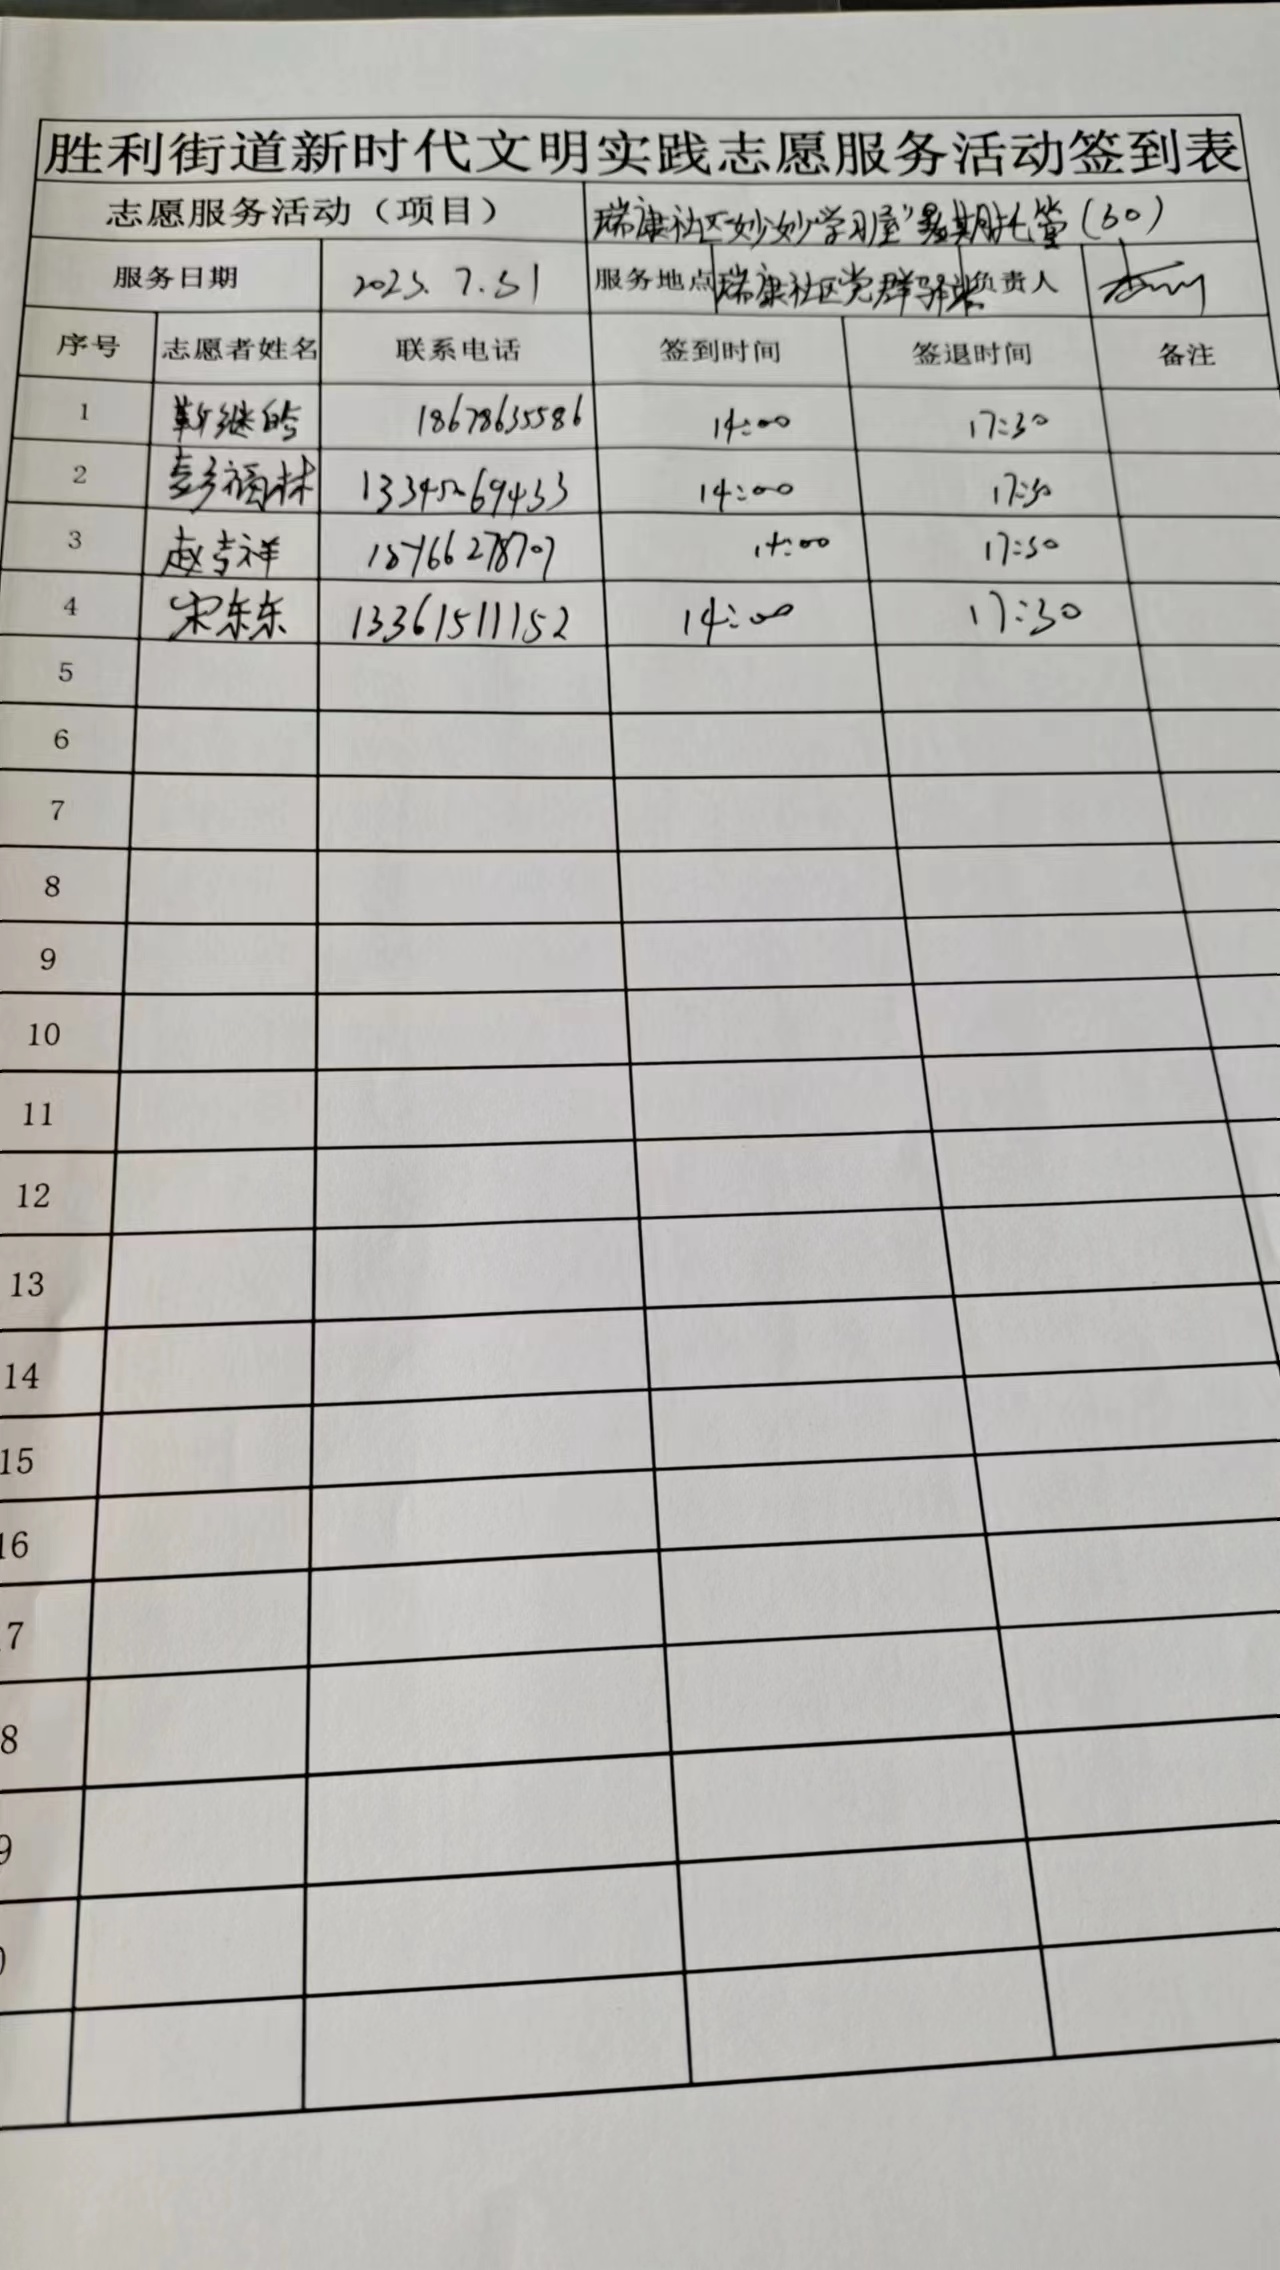 胜利街道新时代文明实践志愿服务活动签到表
志愿服务活动（项目） 瑞康社区"妙妙学习屋"暑期托管(60)
服务日期 2025.7.31 服务地点 瑞康社区党群驿站 负责人
序号 志愿者姓名 联系电话 签到时间 签退时间 备注
1 靳继皓 18678635586 14:00 17:30
2 彭福林 13345269433 14:00 17:30
3 赵吉祥 18766278707 14:00 17:30
4 宋东东 13361511152 14:00 17:30
5
6
7
8
9
10
11
12
13
14
15
16
7
8
9